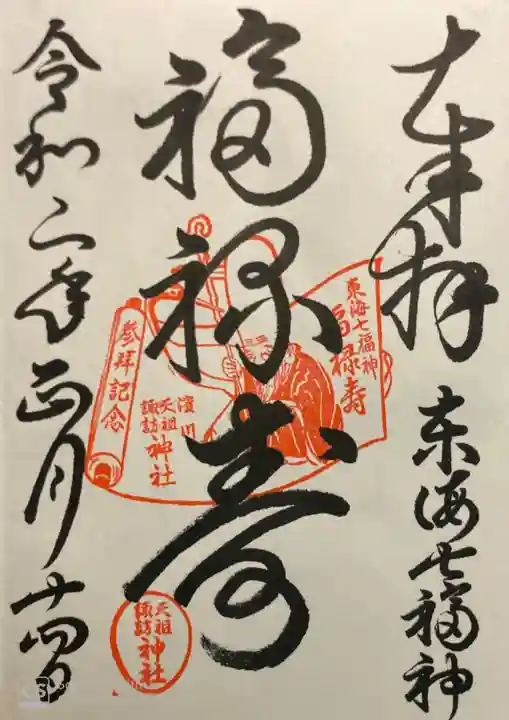 奉拝
東海七福神
福禄寿
令和二年正月十四日
東海七福神
福禄寿
濱川
天祖
諏訪
神社
参拝記念
天祖
諏訪
神社